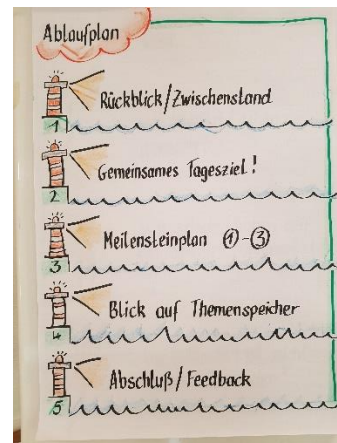 Ablaufplan
1 Rückblick/Zwischenstand
2 Gemeinsames Tagesziel!
3 Meilensteinplan ①-③
4 Blick auf Themenspeicher
5 Abschluß/Feedback